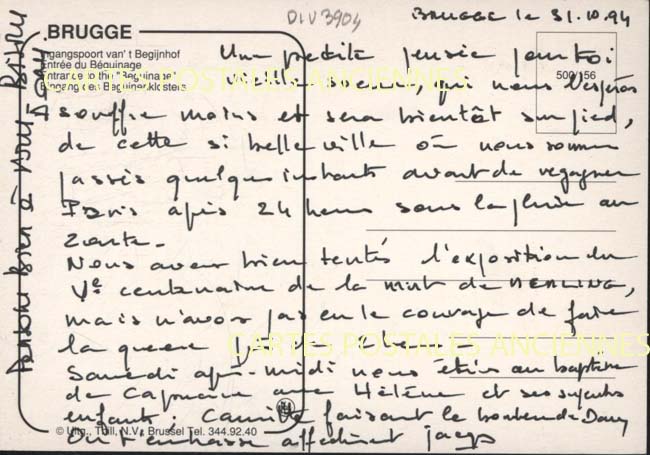 DIV3904
BRUGGE le 31.10.94
BRUGGE
Ingangspoort van' t Begijnhof
Entrée du Béguinage
Entrance to the "Beguinage"
Eingang des Beginenklosters
500/156
Une petite pensée pour toi
vieille, qui nous l'espérons
souffre moins et sera bientôt sur pied,
de cette si belle ville où nous sommes
passés quelques instants avant de regagner
Paris après 24 heures sous la pluie au
Zoute.
Nous avons bien tentés l'exposition du
Ve centenaire de la mort de MEMLING,
mais n'avons pas eu le courage de faire
la queue
Samedi après-midi nous étions au baptême
de Capucine avec Hélène et ses
enfants : Camille faisant le bonheur de Dany
On t'embrasse affectueusement Jacques
© Uitg., Thill, N.V., Brussel Tel. 344.92.40
CARTES POSTALES ANCIENNES
CARTES POSTALES ANCIENNES